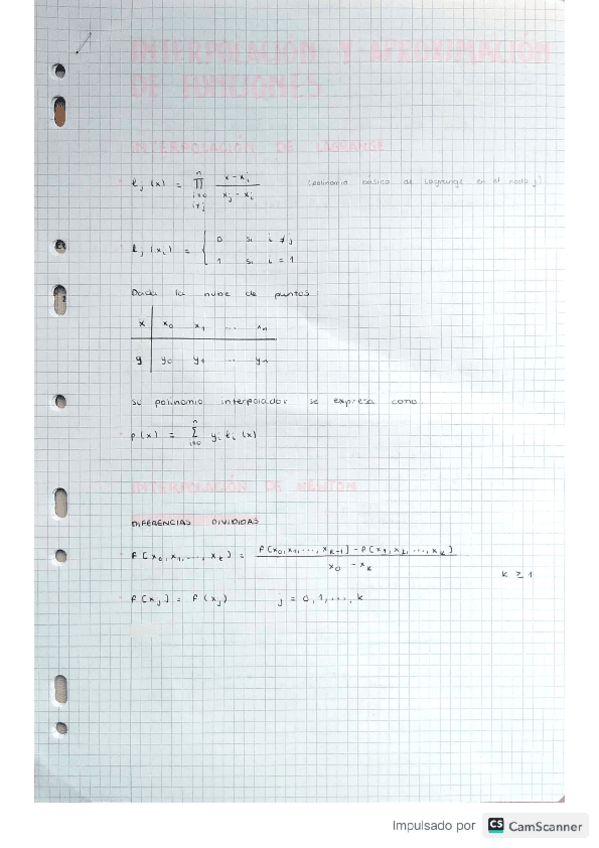 INTERPOLACIÓN Y APROXIMACIÓN
DE FUNCIONES
INTERPOLACIÓN DE LAGRANGE
ℓj (x) = ∏ (i=0, i≠j; n) (x - xi) / (xj - xi) (polinomio básico de Lagrange en el nodo j)
ℓj (xi) = { 0 si i ≠ j
1 si i = 1
Dada la nube de puntos:
x | x0 x1 ... xn
y | y0 y1 ... yn
su polinomio interpolador se expresa como
p(x) = Σ (i=0; n) yi ℓi (x)
INTERPOLACIÓN DE NEWTON
DIFERENCIAS DIVIDIDAS
f[x0, x1, ..., xk] = (f[x0, x1, ..., xk-1] - f[x1, x2, ..., xk]) / (x0 - xk)
k ≥ 1
f[xj] = f(xj) j = 0, 1, ..., k
Impulsado por CS CamScanner